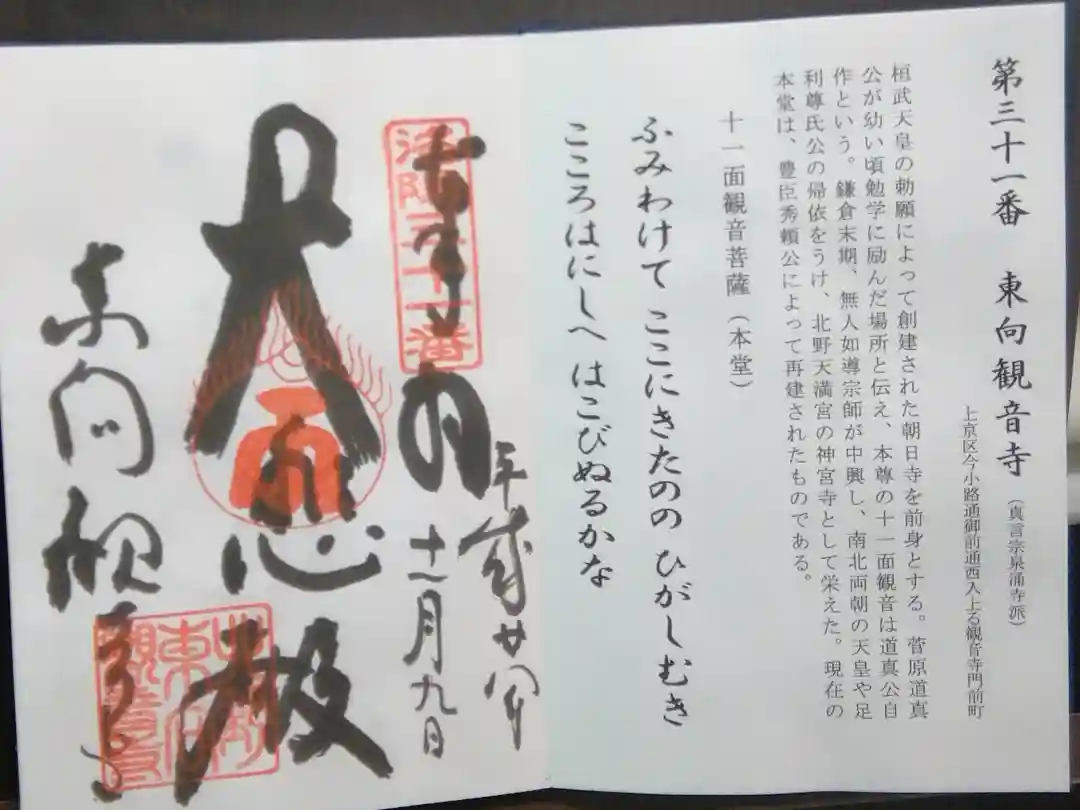 第三十一番 東向観音寺(真言宗泉涌寺派)
上京区今小路通御前通西入上る観音寺門前町
桓武天皇の勅願によって創建された朝日寺を前身とする。菅原道真
公が幼い頃勉学に励んだ場所と伝え、本尊の十一面観音は道真公自
作という。鎌倉末期、無人如導宗師が中興し、南北両朝の天皇や足
利尊氏公の帰依をうけ、北野天満宮の神宮寺として栄えた。現在の
本堂は、豊臣秀頼公によって再建されたものである。
十一面観音菩薩(本堂)
ふみわけて ここにきたのの ひがしむき
こころはにしへ はこびぬるかな
平成廿八年
十一月九日
奉拝
洛陽三十一番
大悲殿
東向観音寺